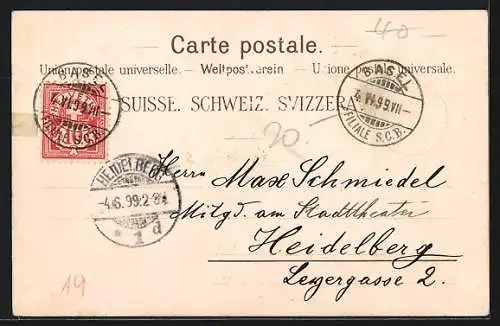 40
Carte postale.
Union postale universelle. — Weltpostverein — Unione postale universale.
SUISSE. SCHWEIZ. SVIZZERA.
BASEL
4. VI. 99. VII—
FILIALE S.C.B.
BASEL
4. VI. 99. VII—
FILIALE S.C.B.
10
20
HEIDELBERG
-4.6.99.2-3N.
* 1 d
Herrn Max Schmiedel
Mitgd. am Stadttheater
Heidelberg
Leyergasse 2.
19